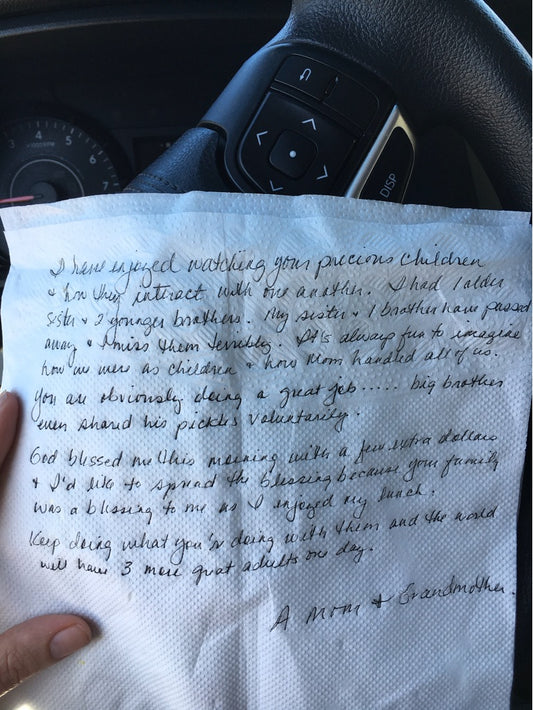 3
4
5
6
7
DISP
I have enjoyed watching your precious children
& how they interact with one another. I had 1 older
sister & 2 younger brothers. My sister & 1 brother have passed
away & I miss them terribly. It's always fun to imagine
how we were as children & how Mom handled all of us.
You are obviously doing a great job..... big brother
even shared his pickles voluntarily.
God blessed me this morning with a few extra dollars
& I'd like to spread the blessing because your family
was a blessing to me as I enjoyed my lunch.
Keep doing what you're doing with them and the world
will have 3 more great adults one day.
A Mom & Grandmother.